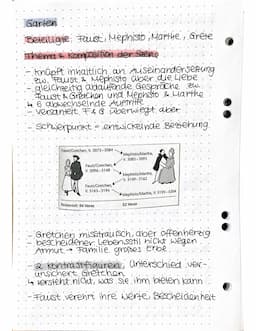 Garten
Beteiligte: Faust, Mephisto, Marthe, Grete
Thema & Komposition der Szene
- Knüpft inhaltlich an Auseinandersetzung
zw. Faust & Mephisto über die Liebe
- gleichzeitig ablaufende Gespräche zw.
Faust & Gretchen und Mephisto & Marthe
↳ 6 abwechselnde Auftritte
- Versanteil F & G überwiegt aber
- Schwerpunkt = entwickelnde Beziehung
Faust/Gretchen,
Mephisto/Marthe,
Faust/Gretchen,
Mephisto/Marthe,
Faust/Gretchen,
Mephisto/Marthe,
- Gretchen misstrauisch, aber offenherzig
bescheidener Lebensstil nicht wegen
Armut - Familie großes Erbe
- 2 Kontrastfiguren, Unterschied ver-
unsichert Gretchen
↳ versteht nicht, was sie ihm bieten kann
- Faust verehrt ihre Werte, Bescheidenheit